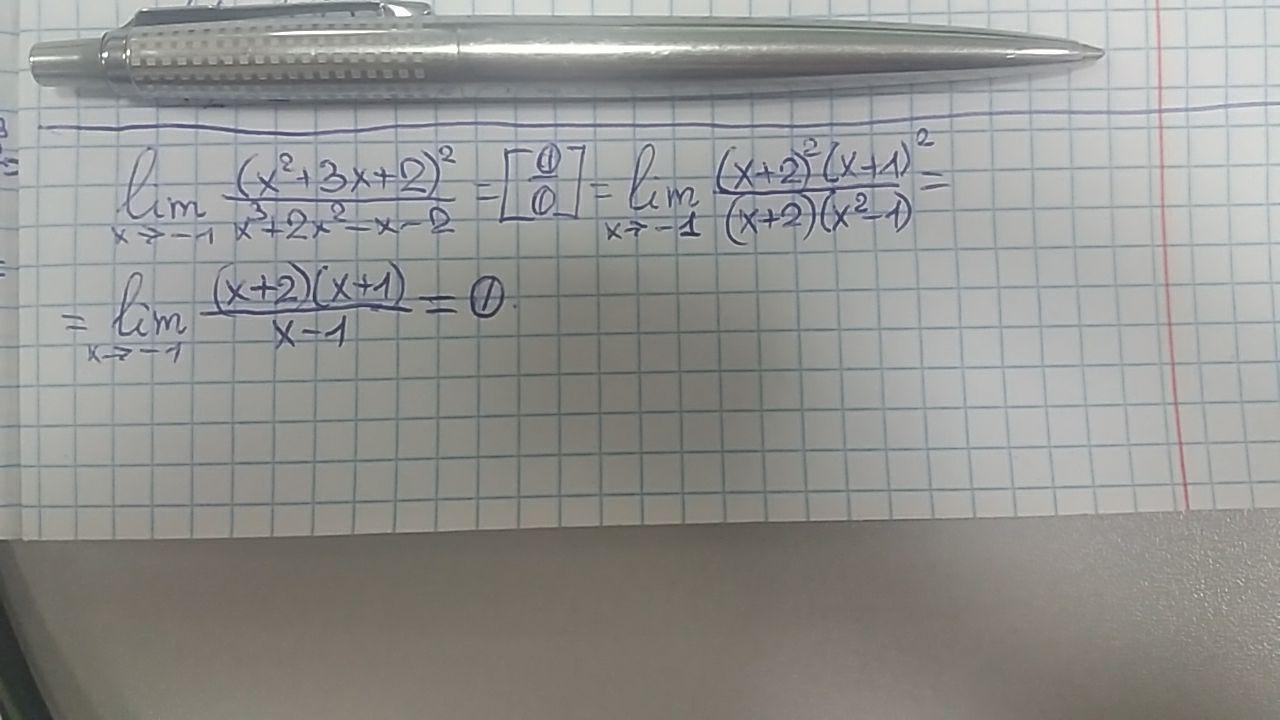 lim x→-1 (x²+3x+2)² / (x³+2x²-x-2) = [0/0] = lim x→-1 (x+2)²(x+1)² / ((x+2)(x²-1)) =
= lim x→-1 (x+2)(x+1) / (x-1) = 0.